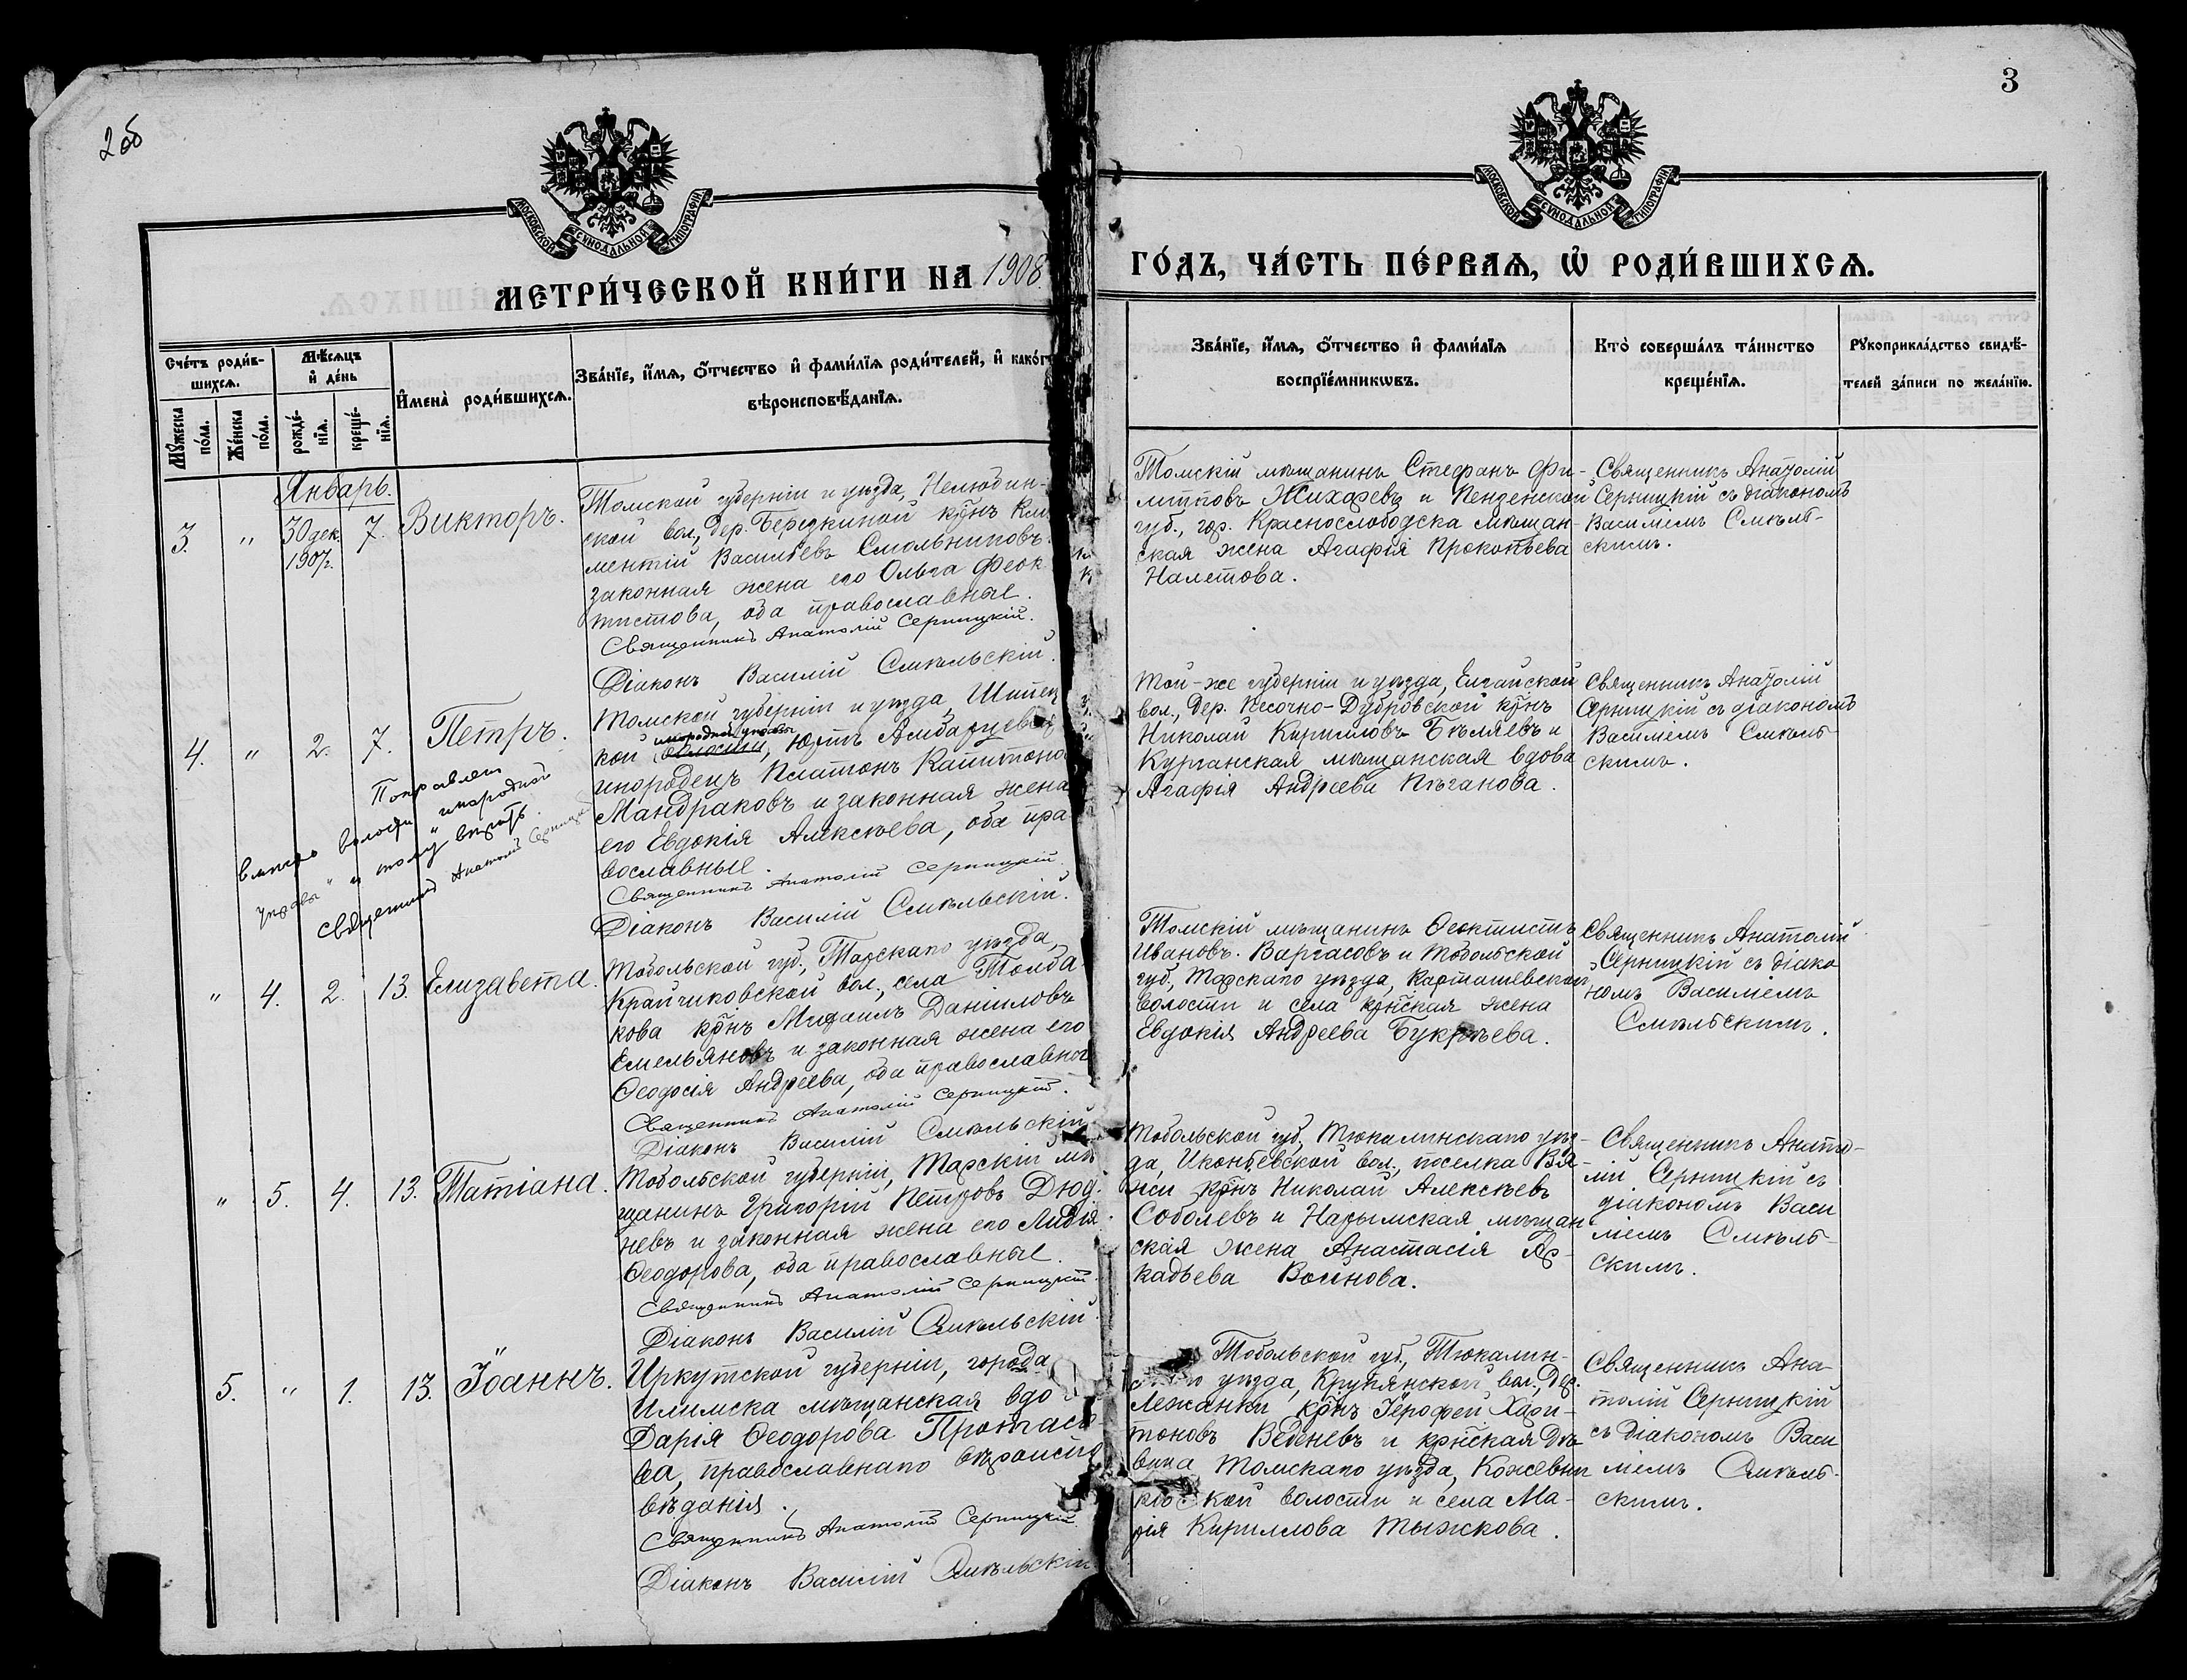 2 об
3
МОСКОВСКОЙ СѴНОДАЛЬНОЙ ТИПОГРАФІИ
МОСКОВСКОЙ СѴНОДАЛЬНОЙ ТИПОГРАФІИ
МЕТРИ́ЧЕСКОЙ КНИ́ГИ НА 1908
ГО́ДЪ, ЧА́СТЬ ПЕ́РВАѦ, Ѡ҆ РОДИ́ВШИХСѦ.
Сче́тъ роди́в-
шихсѧ.
Мꙋ́жеска по́ла.
Же́нска по́ла.
Мѣ́сѧцъ
и҆ де́нь
рожде́-
нїѧ.
креще́-
нїѧ.
И҆мена̀ роди́вшихсѧ.
Зва́нїе, и҆́мѧ, ѻ҆́тчество и҆ фами́лїѧ роди́телей, и҆ како́г
вѣроисповѣ́данїѧ.
Зва́нїе, и҆́мѧ, ѻ҆́тчество и҆ фами́лїѧ
воспрїе́мникѡвъ.
Кто̀ соверша́лъ та́инство
креще́нїѧ.
Рꙋкоприкла́дство свидѣ́-
телей за́писи по жела́нїю.
Январь.
3. " 30 дек. 1907г. 7. Викторъ.
Томской губерніи и уѣзда, Нелюбин-
ской вол., дер. Березкиной кр̃нъ Кли
ментій Васильевъ Смольниковъ
законная жена его Ольга Феок
тистова, оба православные.
Священникъ Анатолій Серницкій.
Діаконъ Василій Смѣльскій.
Томскій мѣщанинъ Стефанъ Фи-
липповъ Жихаревъ и Пензенской
губ., гор. Краснослободска мѣщан-
ская жена Агафія Прокопьева
Налетова.
Священникъ Анатолій
Серницкій съ діакономъ
Василіемъ Смѣль-
скимъ.
4. " 2. 7. Петръ.
Томской губерніи и уѣзда, Шипец
инородной управы
кой волости, юртъ
инородецъ Платонъ Капитоно
Мандраковъ и законная жена
его Евдокія Алексѣева, оба пра
вославные.
Священникъ Анатолій Серницкій
Діаконъ Василій Смѣльскій.
Поправлен
вмѣсто волости инородной
управы" и тому вѣрить.
Священникъ Анатолій Серницкій
Той-же губерніи и уѣзда, Елгайской
вол., дер. Песочно-Дубровской кр̃нъ
Николай Кирилловъ Бѣляевъ и
Курганская мѣщанская вдова
Агафія Андреева Пѣганова.
Священникъ Анатолій
Серницкій съ діакономъ
Василіемъ Смѣль-
скимъ.
" 4. 2. 13. Елизавета.
Тобольской губ., Тарскаго уѣзда,
Крайчиковской вол., села Колба
кова кр̃нъ Михаилъ Даніиловъ
Емельяновъ и законная жена его
Ѳеодосія Андреева, оба православног
Священникъ Анатолій Серницкій.
Діаконъ Василій Смѣльскій
Томскій мѣщанинъ Ѳеоктистъ
Ивановъ Варгасовъ и Тобольской
губ., Тарскаго уѣзда, Карташевской
волости и села кр̃нская жена
Евдокія Андреева Букрѣева.
Священникъ Анатолій
Серницкій съ діако
номъ Василіемъ
Смѣльскимъ.
" 5. 4. 13. Татіана.
Тобольской губерніи, Тарскій мѣ
щанинъ Григорій Петровъ Дюд
невъ и законная жена его Лидія
Ѳеодорова, оба православные.
Священникъ Анатолій Серницкій
Діаконъ Василій Смѣльскій
Тобольской губ., Тюкалинскаго уѣз-
да, Иконьевской вол., поселка Вя-
жи кр̃нъ Николай Алексѣевъ
Соболевъ и Нарымская мѣщан
ская жена Анастасія Ар-
кадьева Воинова.
Священникъ Анато-
лій Серницкій съ
діакономъ Васи
ліемъ Смѣль-
скимъ.
5. " 1. 13. Іоаннъ.
Иркутской губерніи, города
Илимска мѣщанская вдо
Дарія Ѳеодорова Протасо
ва, православнаго вѣроиспо
вѣданія.
Священникъ Анатолій Серницкій
Діаконъ Василій Смѣльскій
Тобольской губ., Тюкалин-
уѣзда, Крутянской вол., дер.
Лежанки кр̃нъ Іерофей Хари-
тоновъ Веденевъ и кр̃нская дѣ
вица Томскаго уѣзда, Кожевни
ковской волости и села Ма-
рія Кириллова Тыжкова.
Священникъ Ана-
толій Серницкій
съ діакономъ Васи
ліемъ Смѣль-
скимъ.